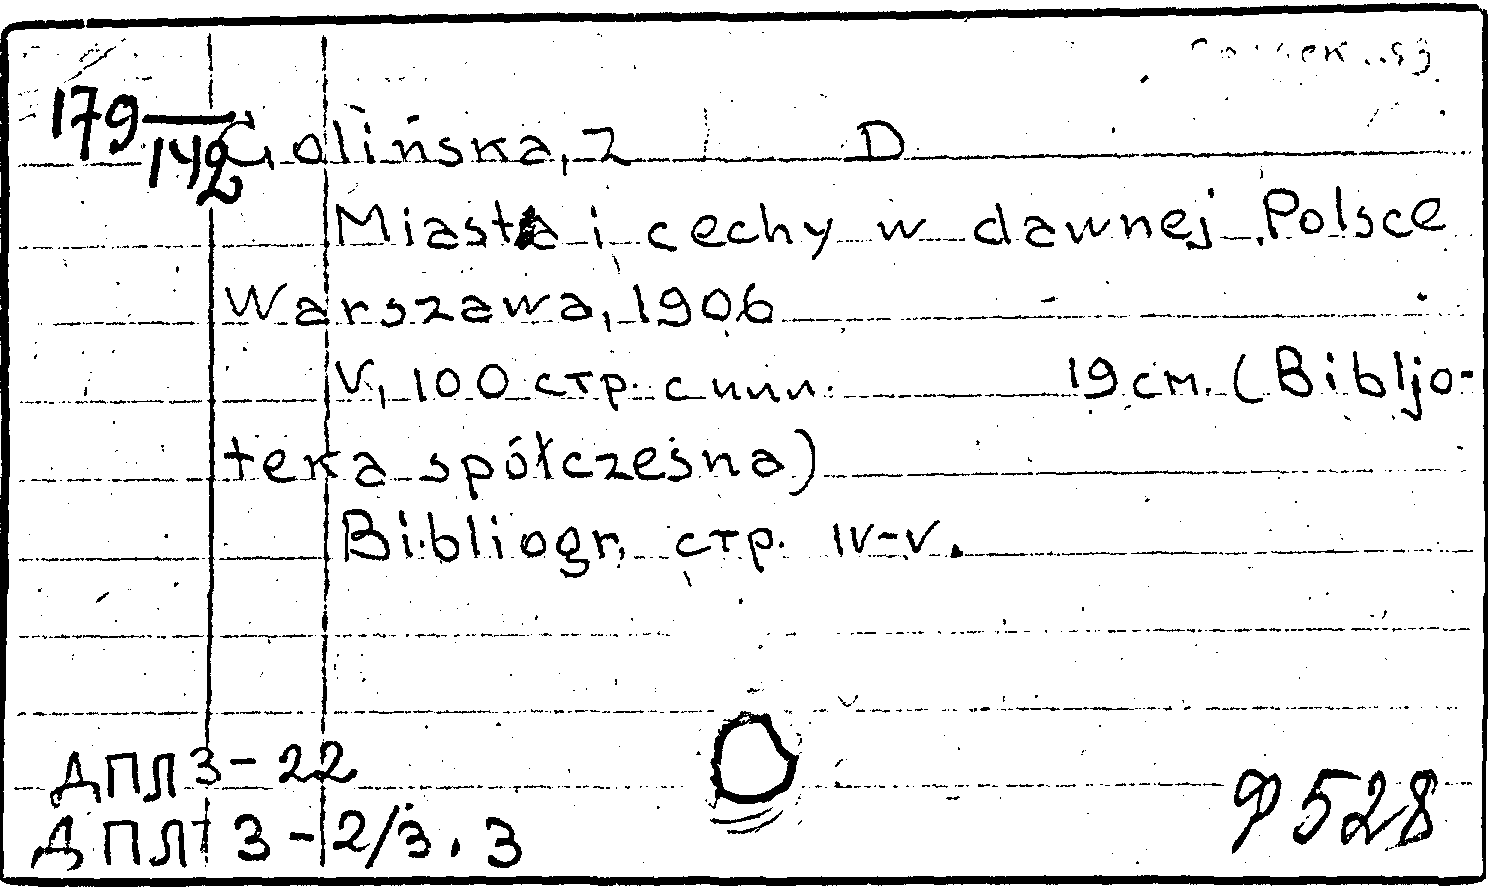 179/142
Golińska, Z D
Miasta i cechy w dawnej Polsce
Warszawa, 1906
V, 100 стр. с илл. 19 см. (Bibljo-
teka spółczesna)
Bibliogr. стр. IV-V.
ДПЛ 3-22
ДПЛ 3-2/3.3
9528